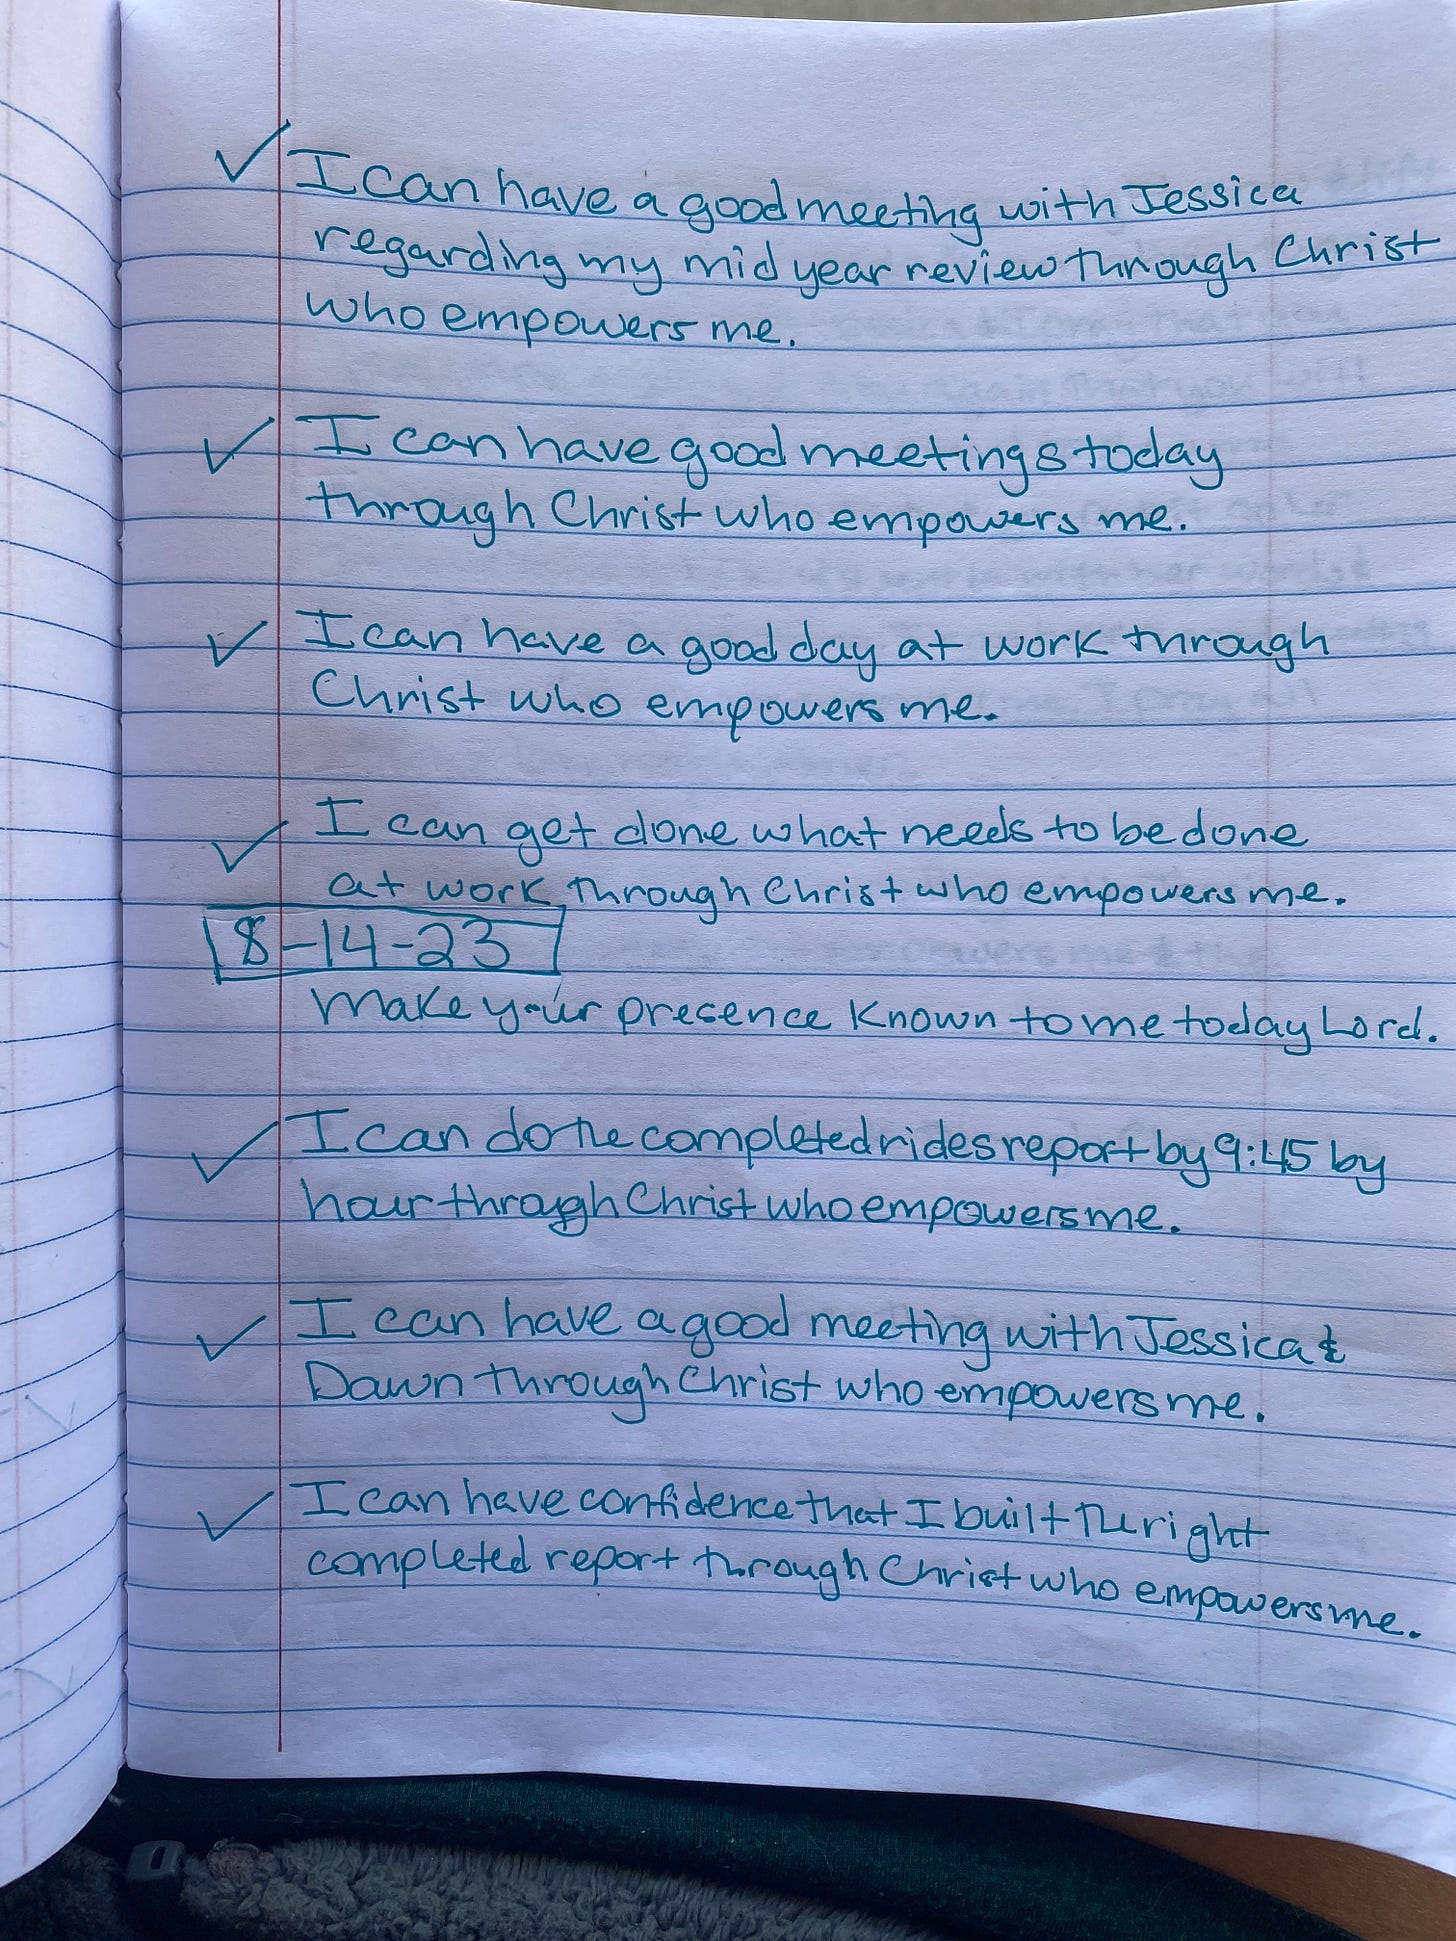 ✓ I can have a good meeting with Jessica
regarding my mid year review through Christ
who empowers me.
✓ I can have good meetings today
through Christ who empowers me.
✓ I can have a good day at work through
Christ who empowers me.
✓ I can get done what needs to be done
at work through Christ who empowers me.
8-14-23
Make your presence known to me today Lord.
✓ I can do the completed rides report by 9:45 by
hour through Christ who empowers me.
✓ I can have a good meeting with Jessica &
Dawn through Christ who empowers me.
✓ I can have confidence that I built the right
completed report through Christ who empowers me.